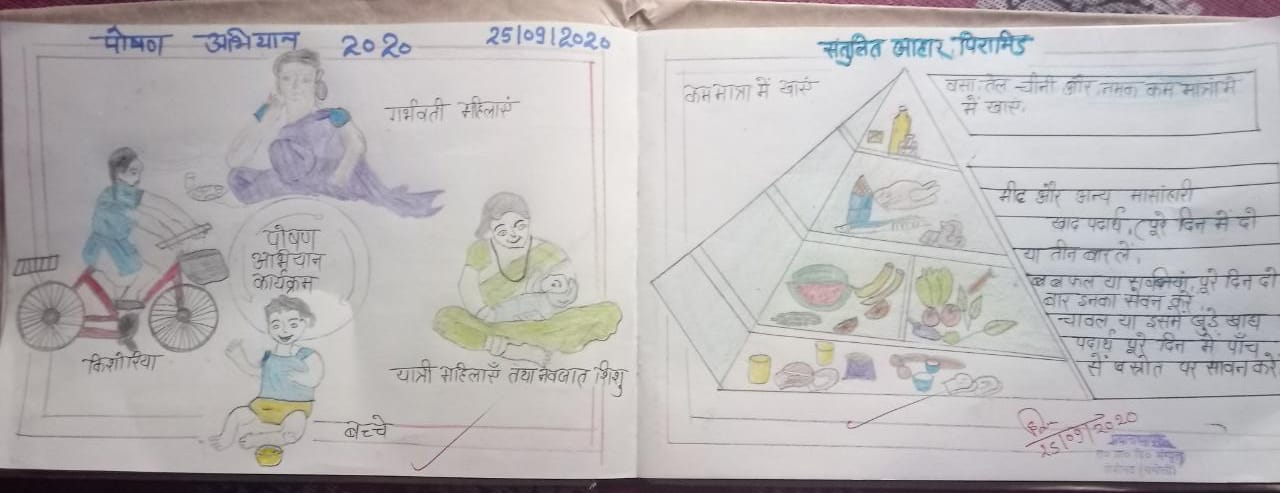 पोषण अभियान 2020 25/09/2020
गर्भवती महिलाएं
पोषण
अभियान
कार्यक्रम
किशोरिया
यात्री महिलाएँ तथा नवजात शिशु
बच्चे
संतुलित आहार पिरामिड
कम मात्रा में खाएं
वसा, तेल चीनी और नमक कम मात्रा में
में खाए.
मीट और अन्य मासांहारी
खाद्य पदार्थ, (पूरे दिन में दो
या तीन बार लें.
फल या सब्जियां, पूरे दिन दो
बार इनका सेवन करें.
चावल या इसमें जुड़े खाद्य
पदार्थ पूरे दिन में पाँच
से स्रोत पर सावन करें
25/09/2020